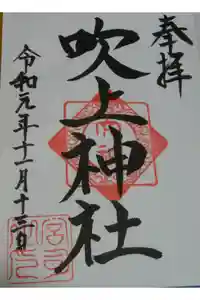 奉拝
吹上神社
令和元年十一月十三日